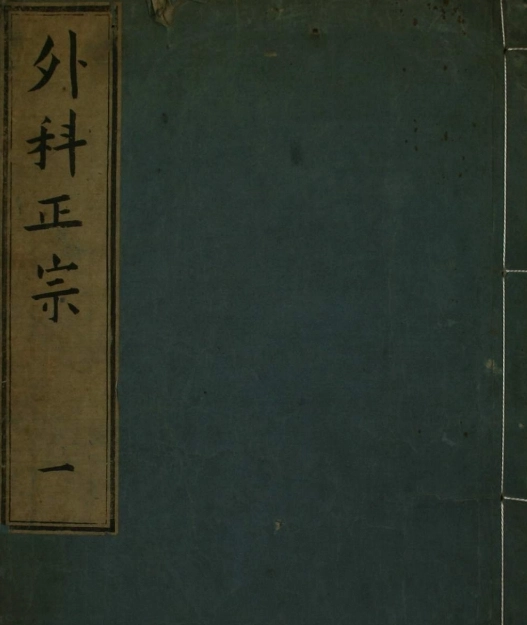 外科正宗
一